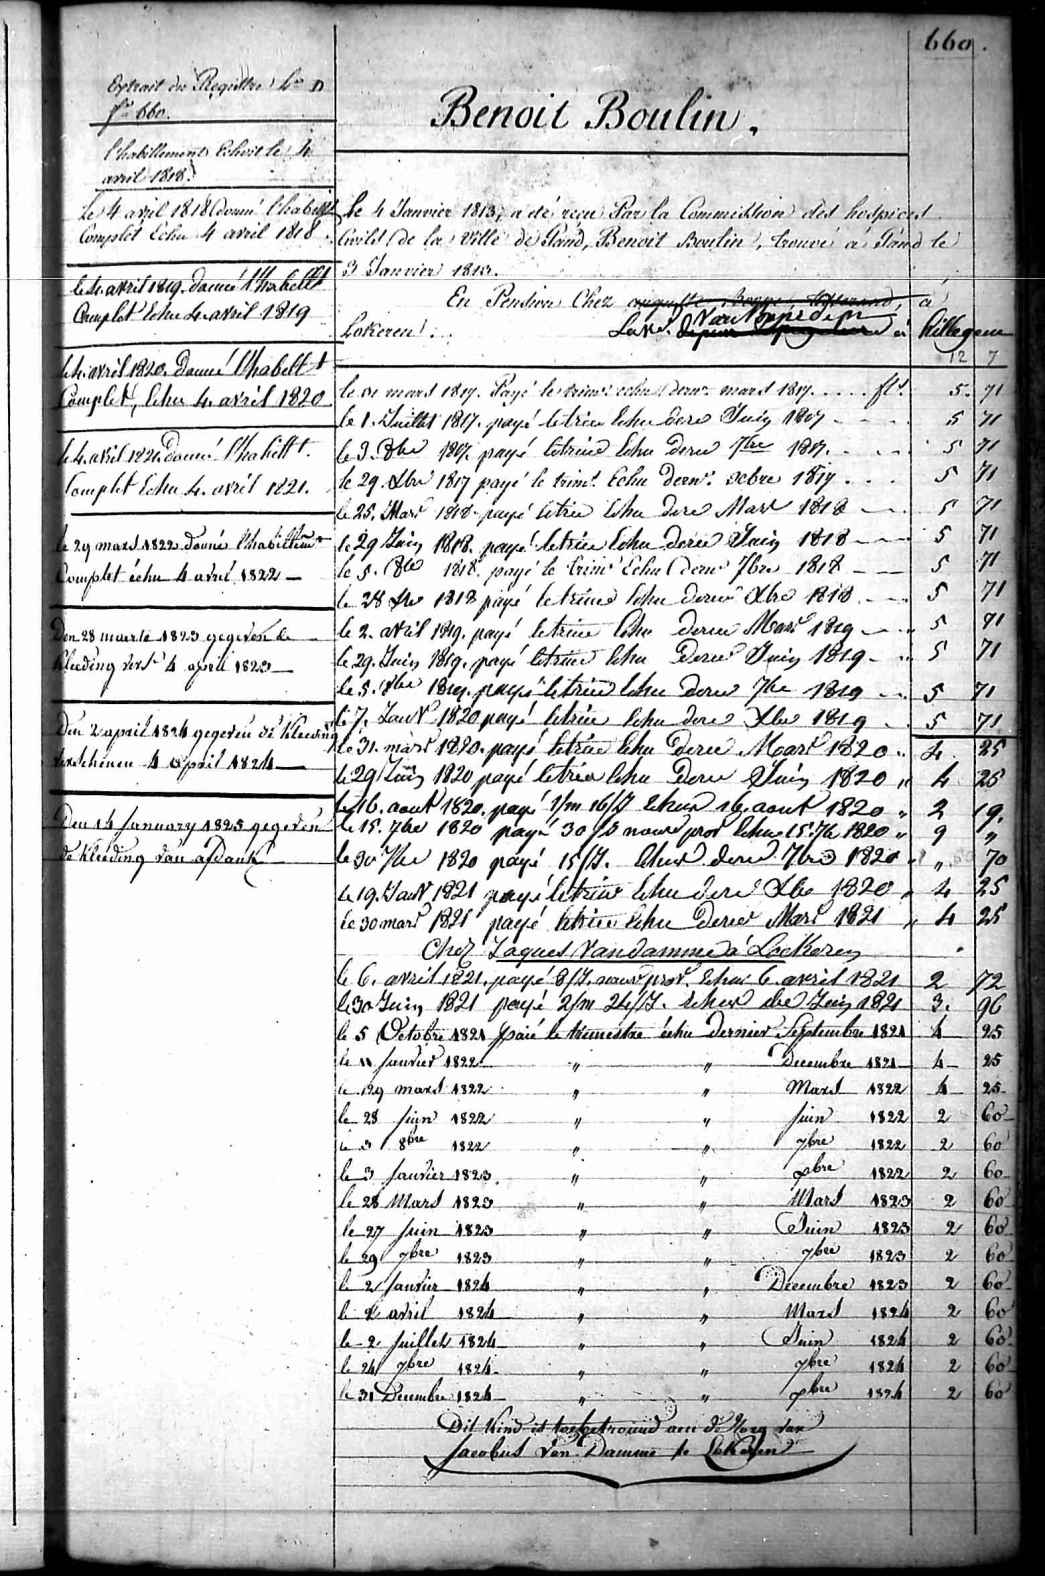 660.
Extrait du Registre Lra D
fo 660.
l'habillement Echoit le 4
avril 1818.
Le 4 avril 1818 donné l'habillt
Complet Echu 4 avril 1818.
le 4. avril 1819. donné l'habillt
Complet Echu 4. avril 1819
le 4. avril 1820. Donné l'habillt
Complet, Echu 4. avril 1820
le 4. avril 1821. Donné l'habillt.
Complet Echu 4. avril 1821.
le 29 mars 1822 donné l'habillemt
Complet échu 4 avril 1822
Den 28 maarte 1823 gegeven de
kleeding verst 4 april 1823
Den 2 april 1824 gegeven de kleeding
verschenen 4 april 1824
Den 14 January 1825 gegeven
de kleeding van afdank
Benoit Boulin.
Le 4 Janvier 1813, a été reçu Par la Commission des hospices
Civils de la Ville de Gand, Benoit Boulin, trouvé à Gand le
3 Janvier 1813.
En Pension Chez à
Lokeren. à Killegem
12 7
le 31 mars 1817. Payé le trimt. echu dernr. mars 1817. fls. 5. 71
le 1. Juillet 1817. payé letrim Echu dere Juin 1817 5 71
le 3. 8bre 1817. payé letrim Echu derer 7bre 1817. 5 71
le 29 Xbre 1817 payé le trimt. Echu dernr. xcbre 1817. 5 71
le 25. Mars 1818 payé letrim Echu dere Mars 1818 5 71
le 29 Juin 1818. payé letrim Echu derer Juin 1818 5 71
le 5. 8bre 1818. payé le trimt Echu derer 7bre 1818 5 71
le 28 Xbre 1818 payé letrim Echu derer Xbre 1818 5 71
le 2. avril 1819. payé letrim Echu derer Mars 1819 5 71
le 29. Juin 1819. payé letrim Echu Derer Juin 1819 5 71
le 5. 8bre 1819. payé letrim Echu derer 7bre 1819 5 71
le 7. Janvr 1820 payé letrim Echu dere Xbre 1819 5 71
le 31. mars 1820. payé letrim Echu Derer Mars 1820 " 4. 25
le 29 Juin 1820 payé letrim Echu Derer Juin 1820 " 4 25
le 16. aout 1820. payé 1/m 16/J Echus 16. aout 1820 " 2 19.
le 15. 7bre 1820 payé 30/J nouv prov Echus 15. 7bre 1820 " 9 "
le 30 7bre 1820 payé 15/J. Echus dere 7bre 1820 " 70
le 19. Janvr 1821 payé letrim Echu dere Xbre 1820 " 4 25
le 30 mars 1821 payé letrim Echu Derer Mars 1821 " 4 25
Chez Jaques Vandamme à Lockeren
le 6. avril 1821. payé 8/J. nouv prov. Echus 6. avril 1821 2 72
le 30 Juin 1821 payé 2/m 24/J. Echus dre Juin 1821 3. 96
le 5 Octobre 1821 payé le trimestre échu dernier Septembre 1821 4 25
le 11 Janvier 1822 " " Decembre 1821 4 25
le 29 mars 1822 " " Mars 1822 4 25
le 28 Juin 1822 " " Juin 1822 2 60
le 3 8bre 1822 " " 7bre 1822 2 60
le 3 Janvier 1823 " " xbre 1822 2 60
le 28 Mars 1823 " " Mars 1823 2 60
le 27 Juin 1823 " " Juin 1823 2 60
le 29 7bre 1823 " " 7bre 1823 2 60
le 2 Janvier 1824 " " Decembre 1823 2 60
le 2 avril 1824 " " Mars 1824 2 60
le 2 Juillet 1824 " " Juin 1824 2 60
le 24 7bre 1824 " " 7bre 1824 2 60
le 31 Decembre 1824 " " xbre 1824 2 60
Dit Kind is toebetrouwd aen de Zorg van
Jacobus Van Damme te Lokeren